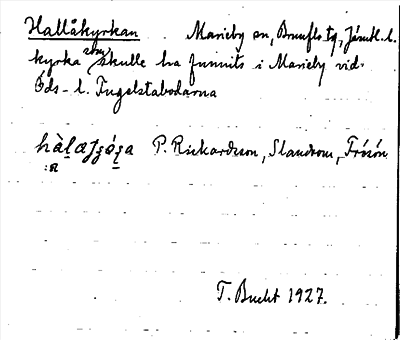 Hallåkyrkan Marieby sn, Brunflo tg, Jämtl. l.
kyrka som skulle ha funnits i Marieby vid
Ods- l. Fugelstabodarna
P. Rickardson, Slandrom, Frösön
T. Bucht 1927.